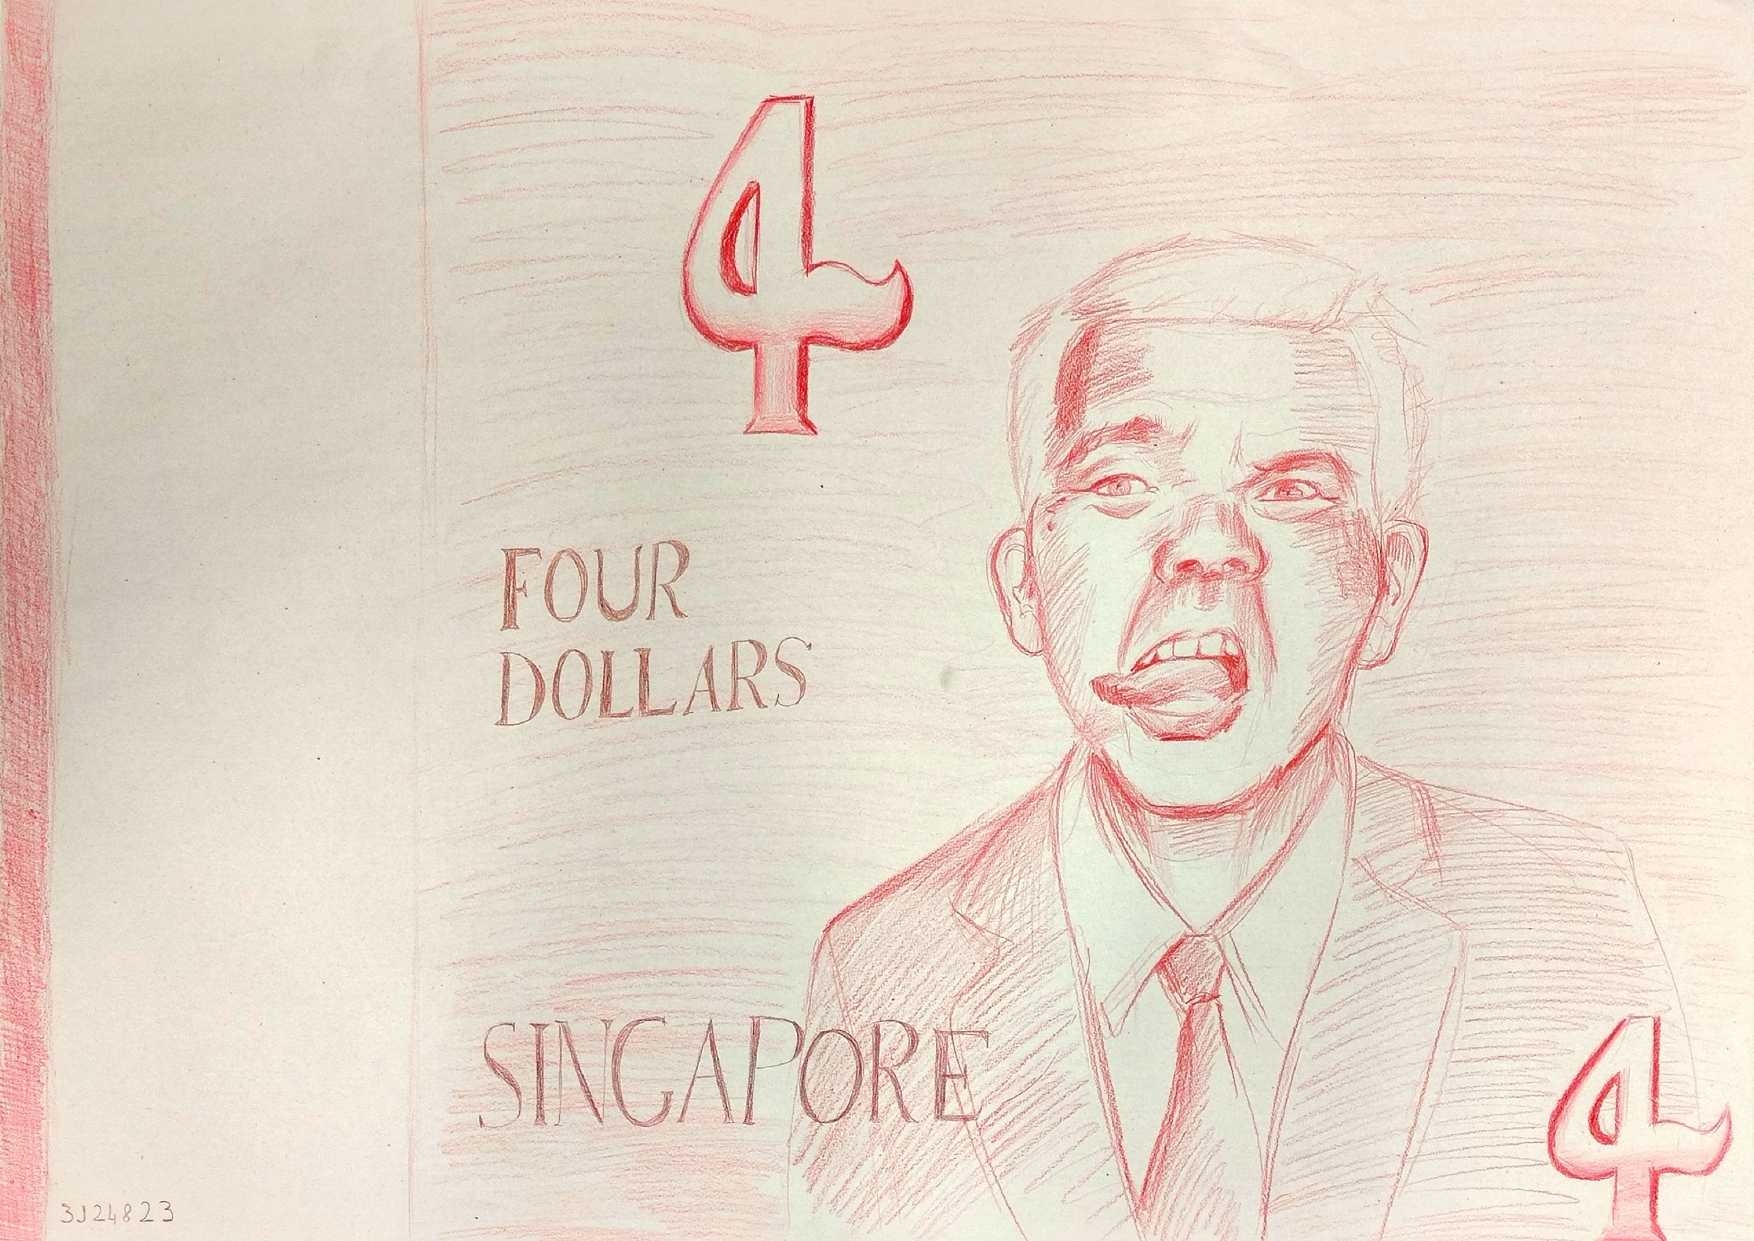 4
FOUR
DOLLARS
SINGAPORE
4
3J24823